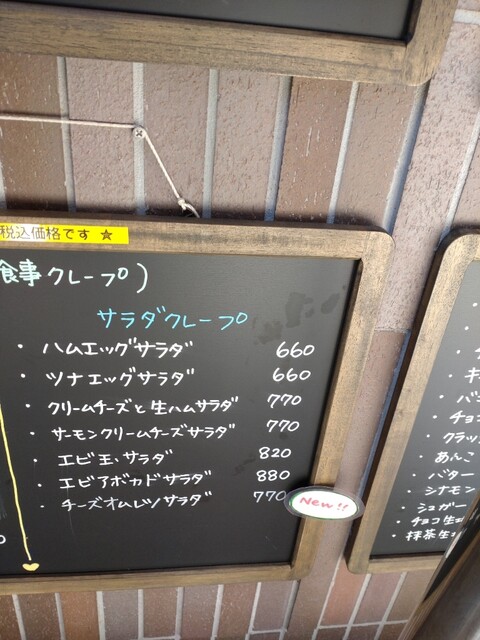 税込価格です ☆
食事クレープ)
サラダクレープ
・ ハムエッグサラダ 660
・ ツナエッグサラダ 660
・ クリームチーズと生ハムサラダ 770
・ サーモンクリームチーズサラダ 770
・ エビ玉サラダ 820
・ エビアボカドサラダ 880
・ チーズオムレツサラダ 770 New!!
・ あんこ
・ バター
・ シナモン
・ シュガー
・ チョコ生
・ 抹茶生